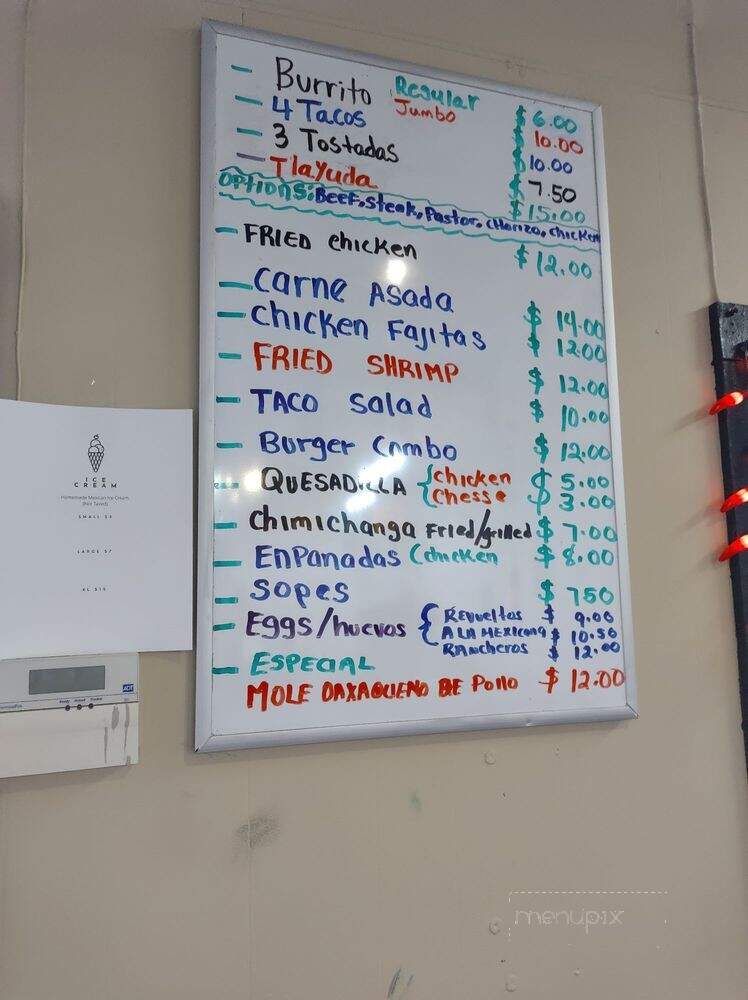 - Burrito Regular $ 6.00
Jumbo $ 10.00
- 4 Tacos $ 10.00
- 3 Tostadas $ 7.50
- Tlayuda $ 15.00
OPTIONS: Beef, Steak, Pastor, CHorizo, chicken
- FRIED chicken $ 12.00
- Carne Asada $ 14.00
- Chicken Fajitas $ 12.00
- FRIED SHRIMP $ 12.00
- TACO Salad $ 10.00
- Burger Combo $ 12.00
- QUESADILLA { chicken $ 5.00
chesse $ 3.00
- Chimichanga Fried/grilled $ 7.00
- EnPanadas (chicken $ 8.00
- Sopes $ 750
- Eggs/huevos { Revueltos $ 9.00
A LA MEXICANA $ 10.50
RAncheros $ 12.00
- ESPECIAL
MOLE OAXAQUENO DE Pollo $ 12.00
ICE
CREAM
Homemade Mexican Ice Cream
(Not Taxed)
SMALL $5
LARGE $7
XL $10
ADT
menupix